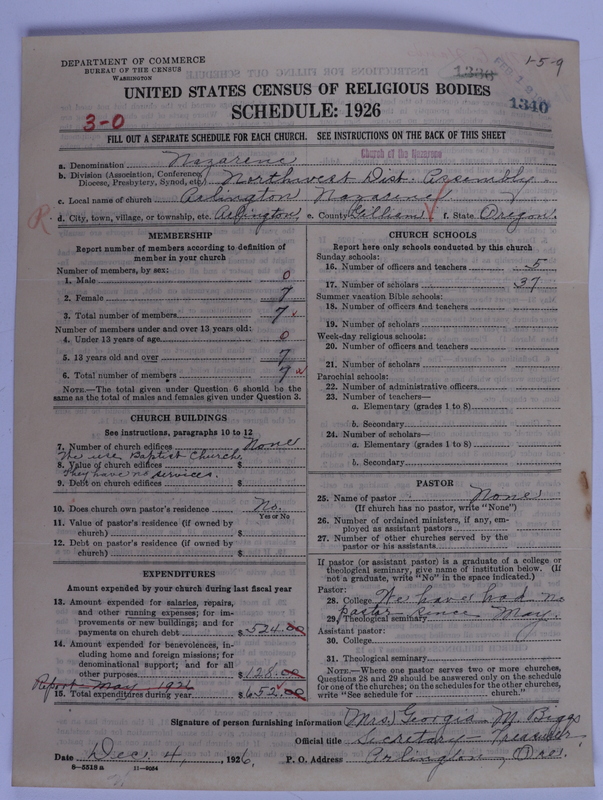 DEPARTMENT OF COMMERCE
BUREAU OF THE CENSUS
WASHINGTON
1-5-9
1330
1340
UNITED STATES CENSUS OF RELIGIOUS BODIES
SCHEDULE: 1926
3-0
FILL OUT A SEPARATE SCHEDULE FOR EACH CHURCH. SEE INSTRUCTIONS ON THE BACK OF THIS SHEET
Church of the Nazarene
a. Denomination Nazarene
b. Division (Association, Conference, Diocese, Presbytery, Synod, etc.) Northwest Dist. Assembly
c. Local name of church Arlington Nazarene
R. d. City, town, village, or township, etc. Arlington, e. County Gilliam f. State Oregon.
MEMBERSHIP
Report number of members according to definition of
member in your church
Number of members, by sex:
1. Male 0
2. Female 7
3. Total number of members 7
Number of members under and over 13 years old:
4. Under 13 years of age 0
5. 13 years old and over 7
6. Total number of members 7
NOTE.—The total given under Question 6 should be
same as the total of males and females given under Question 3.
CHURCH BUILDINGS
See instructions, paragraphs 10 to 12
7. Number of church edifices None
The use Baptist Church.
8. Value of church edifices $
They have no services.
9. Debt on church edifices $
10. Does church own pastor's residence No.
Yes or No
11. Value of pastor's residence (if owned by
church) $
12. Debt on pastor's residence (if owned by
church) $
EXPENDITURES
Amount expended by your church during last fiscal year
13. Amount expended for salaries, repairs,
and other running expenses; for im-
provements or new buildings; and for
payments on church debt $524.00
14. Amount expended for benevolences, in-
cluding home and foreign missions; for
denominational support; and for all
other purposes $128.00
Report May 1926
15. Total expenditures during year $652.00
CHURCH SCHOOLS
Report here only schools conducted by this church
Sunday schools:
16. Number of officers and teachers 5
17. Number of scholars 37
Summer vacation Bible schools:
18. Number of officers and teachers
19. Number of scholars
Week-day religious schools:
20. Number of officers and teachers
21. Number of scholars
Parochial schools:
22. Number of administrative officers
23. Number of teachers—
a. Elementary (grades 1 to 8)
b. Secondary
24. Number of scholars—
a. Elementary (grades 1 to 8)
b. Secondary
PASTOR
25. Name of pastor None
(If church has no pastor, write "None")
26. Number of ordained ministers, if any, em-
ployed as assistant pastors
27. Number of other churches served by the
pastor or his assistants
If pastor (or assistant pastor) is a graduate of a college or
theological seminary, give name of institution below. (If
not a graduate, write "No" in the space indicated.)
Pastor:
28. College We have had no
29. Theological seminary pastor since May.
Assistant pastor:
30. College
31. Theological seminary
NOTE.—Where one pastor serves two or more churches,
Questions 28 and 29 should be answered only on the schedule
for one of the churches; on the schedules for the other churches,
write "See schedule for church."
Signature of person furnishing information (Mrs) Georgia M. Biggs
Official title Secretary-Treasurer
Date Dec. 4, 1926. P. O. Address Arlington, Ore.
8-5518 a 11-9034